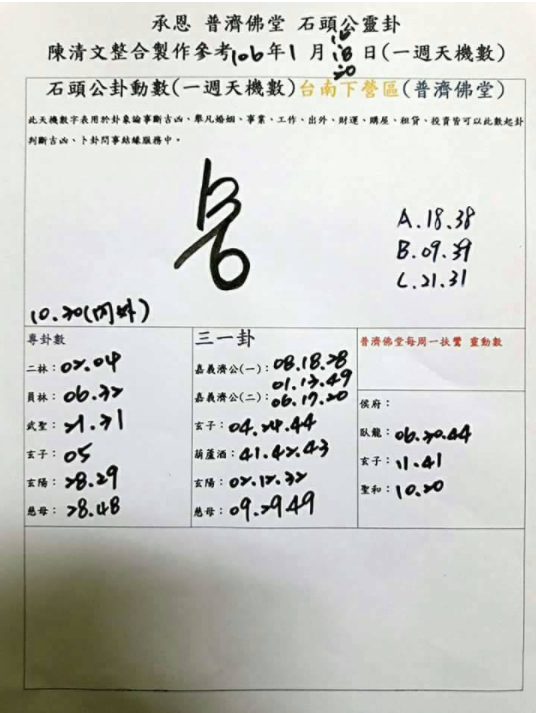 承恩 普濟佛堂 石頭公靈卦
陳清文整合製作參考106年1月16 18 20日(一週天機數)
石頭公卦動數(一週天機數)台南下營區(普濟佛堂)
此天機數字表用於卦象論事斷吉凶、舉凡婚姻、事業、工作、出外、財運、購屋、租貸、投資皆可以此數起卦
判斷吉凶、卜卦問事結緣服務中。
A.18.38
B.09.39
C.21.31
10.20(內外)
專卦數
二林：02.04
員林：06.32
武聖：21.31
玄子：05
玄陽：28.29
慈母：28.48
三一卦
嘉義濟公(一)：08.18.28
01.13.49
嘉義濟公(二)：06.17.20
玄子：04.24.44
葫蘆酒：41.42.43
玄陽：02.12.32
慈母：09.29.49
普濟佛堂每周一扶鸞 靈動數
侯府：
臥龍：06.20.44
玄子：11.41
聖和：10.20